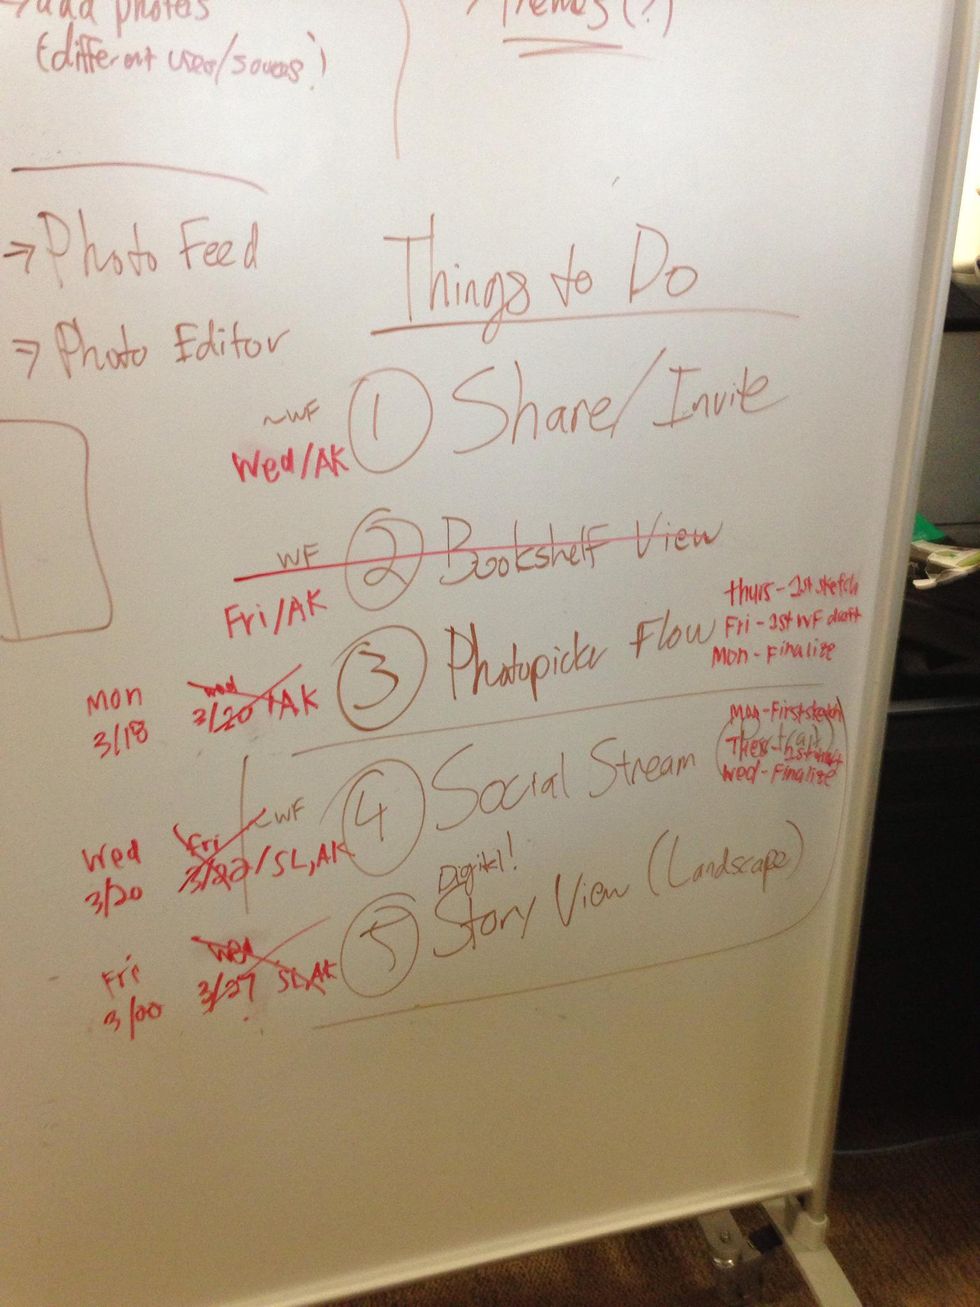 → add photos
(different users/sources)
Themes(?)
→ Photo Feed
→ Photo Editor
Things to Do
~WF
Wed/AK
1 Share/Invite
WF
Fri/AK
2 Bookshelf View
Mon
3/18
Wed
3/20 AK
3 Photopicker Flow
Thurs - 1st sketch
Fri - 1st WF draft
Mon - Finalize
Wed
3/20
Fri
3/22/SL,AK
~WF
4 Social Stream
Mon - First sketch
Wed - Finalize
Fri
Wed
3/27 SL,AK
Digital!
5 Story View (Landscape)